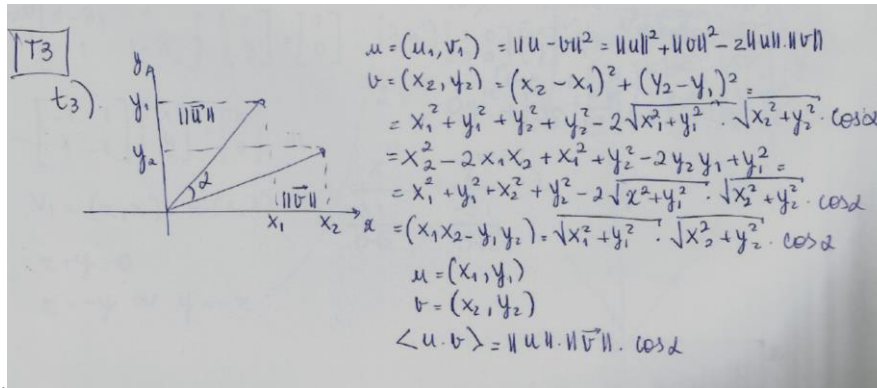 T3
t3).
y
y₁
||u⃗||
y₂
α
||v⃗||
x₁ x₂ x
u = (u₁, v₁) = ||u - v||² = ||u||² + ||v||² - 2||u||·||v||
v = (x₂, y₂) = (x₂ - x₁)² + (y₂ - y₁)² =
= x₁² + y₁² + y₂² + y₂² - 2√(x₁² + y₁²) · √(x₂² + y₂²) · cos α
= x₂² - 2x₁x₂ + x₁² + y₂² - 2y₂y₁ + y₁² =
= x₁² + y₁² + x₂² + y₂² - 2√(x² + y₁²) · √(x₂² + y₂²) · cos α
= (x₁x₂ - y₁y₂) = √(x₁² + y₁²) · √(x₂² + y₂²) · cos α
u = (x₁, y₁)
v = (x₂, y₂)
<u·v> = ||u||·||v⃗||· cos α